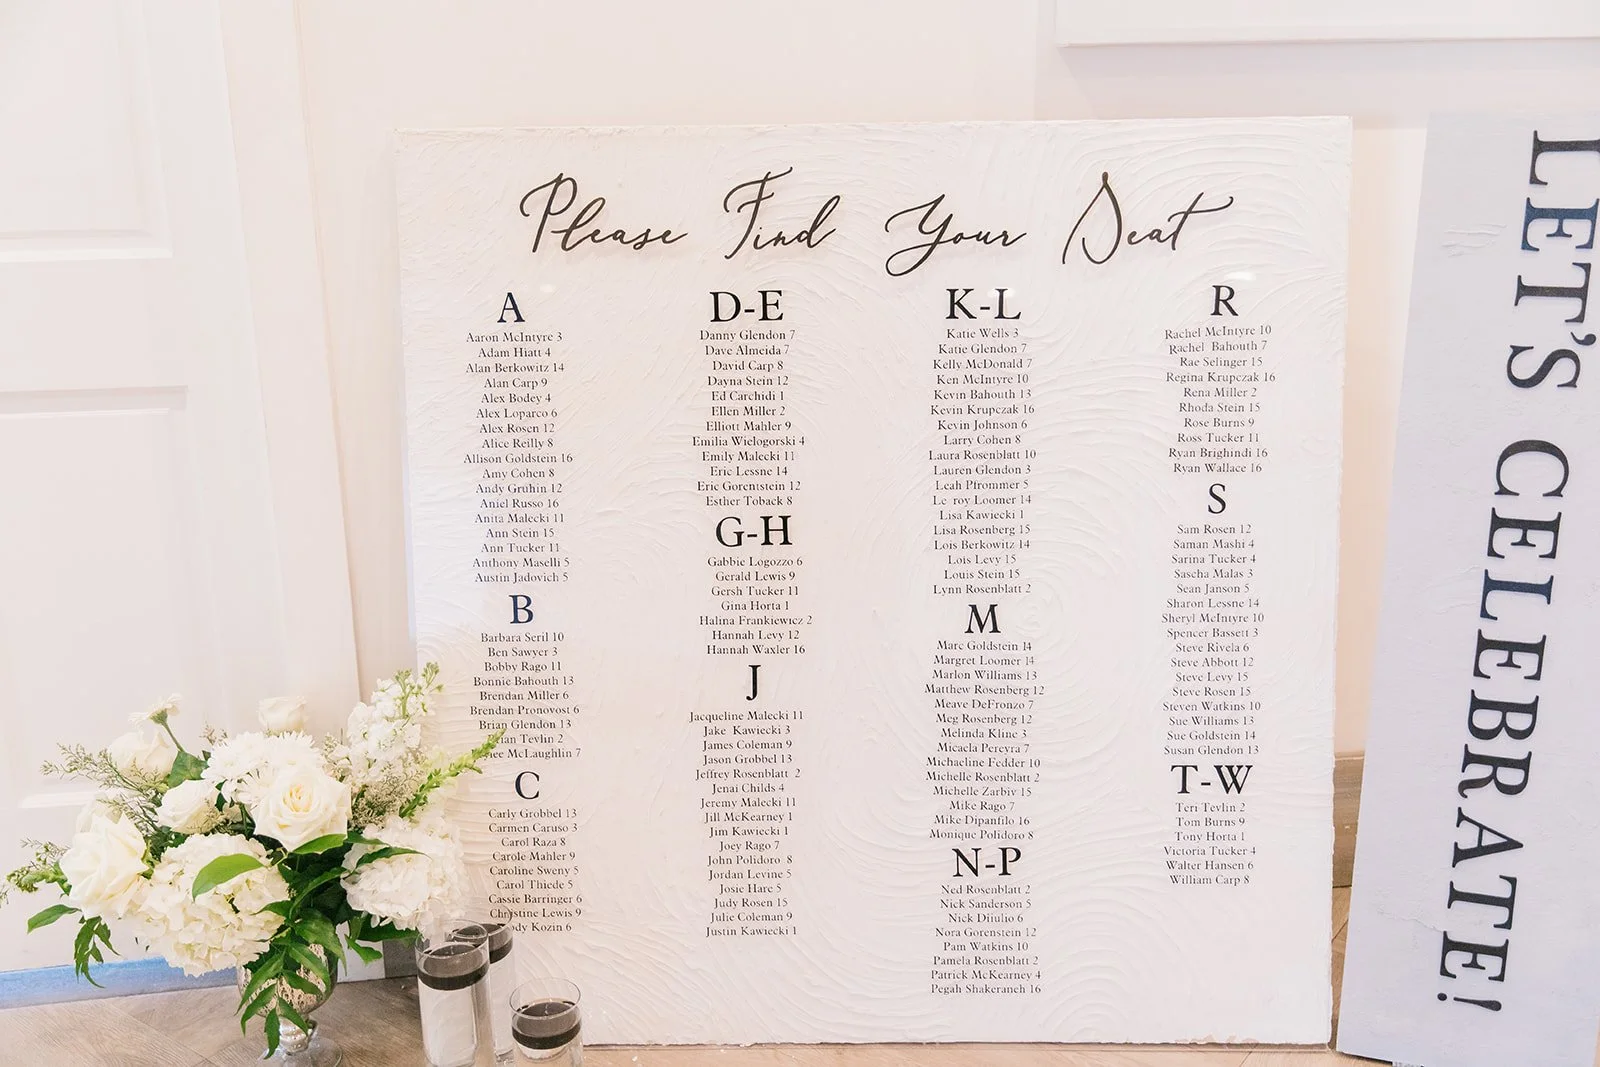 Please Find Your Seat
A
Aaron McIntyre 3
Adam Hiatt 4
Alan Berkowitz 14
Alan Carp 9
Alex Bodey 4
Alex Loparco 6
Alex Rosen 12
Alice Reilly 8
Allison Goldstein 16
Amy Cohen 8
Andy Gruhin 12
Aniel Russo 16
Anita Malecki 11
Ann Stein 15
Ann Tucker 11
Anthony Maselli 5
Austin Jadovich 5
B
Barbara Seril 10
Ben Sawyer 3
Bobby Rago 11
Bonnie Bahouth 13
Brendan Miller 6
Brendan Pronovost 6
Brian Glendon 13
Tevlin 2
McLaughlin 7
C
Carly Grobbel 13
Carmen Caruso 3
Carol Raza 8
Carole Mahler 9
Caroline Sweny 5
Carol Thiede 5
Cassie Barringer 6
Christine Lewis 9
Kozin 6
D-E
Danny Glendon 7
Dave Almeida 7
David Carp 8
Dayna Stein 12
Ed Carchidi 1
Ellen Miller 2
Elliott Mahler 9
Emilia Wielogorski 4
Emily Malecki 11
Eric Lessne 14
Eric Gorentstein 12
Esther Toback 8
G-H
Gabbie Logozzo 6
Gerald Lewis 9
Gersh Tucker 11
Gina Horta 1
Halina Frankiewicz 2
Hannah Levy 12
Hannah Waxler 16
J
Jacqueline Malecki 11
Jake Kawiecki 3
James Coleman 9
Jason Grobbel 13
Jeffrey Rosenblatt 2
Jenai Childs 4
Jeremy Malecki 11
Jill McKearney 1
Jim Kawiecki 1
Joey Rago 7
John Polidoro 8
Jordan Levine 5
Josie Hare 5
Judy Rosen 15
Julie Coleman 9
Justin Kawiecki 1
K-L
Katie Wells 3
Katie Glendon 7
Kelly McDonald 7
Ken McIntyre 10
Kevin Bahouth 13
Kevin Krupczak 16
Kevin Johnson 6
Larry Cohen 8
Laura Rosenblatt 10
Lauren Glendon 3
Leah Pfrommer 5
Le roy Loomer 14
Lisa Kawiecki 1
Lisa Rosenberg 15
Lois Berkowitz 14
Lois Levy 15
Louis Stein 15
Lynn Rosenblatt 2
M
Marc Goldstein 14
Margret Loomer 14
Marlon Williams 13
Matthew Rosenberg 12
Meave DeFronzo 7
Meg Rosenberg 12
Melinda Kline 3
Micaela Pereyra 7
Michaeline Fedder 10
Michelle Rosenblatt 2
Michelle Zarbiv 15
Mike Rago 7
Mike Dipanfilo 16
Monique Polidoro 8
N-P
Ned Rosenblatt 2
Nick Sanderson 5
Nick Diiulio 6
Nora Gorenstein 12
Pam Watkins 10
Pamela Rosenblatt 2
Patrick McKearney 4
Pegah Shakeraneh 16
R
Rachel McIntyre 10
Rachel Bahouth 7
Rae Selinger 15
Regina Krupczak 16
Rena Miller 2
Rhoda Stein 15
Rose Burns 9
Ross Tucker 11
Ryan Brighindi 16
Ryan Wallace 16
S
Sam Rosen 12
Saman Mashi 4
Sarina Tucker 4
Sascha Malas 3
Sean Janson 5
Sharon Lessne 14
Sheryl McIntyre 10
Spencer Bassett 3
Steve Rivela 6
Steve Abbott 12
Steve Levy 15
Steve Rosen 15
Steven Watkins 10
Sue Williams 13
Sue Goldstein 14
Susan Glendon 13
T-W
Teri Tevlin 2
Tom Burns 9
Tony Horta 1
Victoria Tucker 4
Walter Hansen 6
William Carp 8
LET'S CELEBRATE!